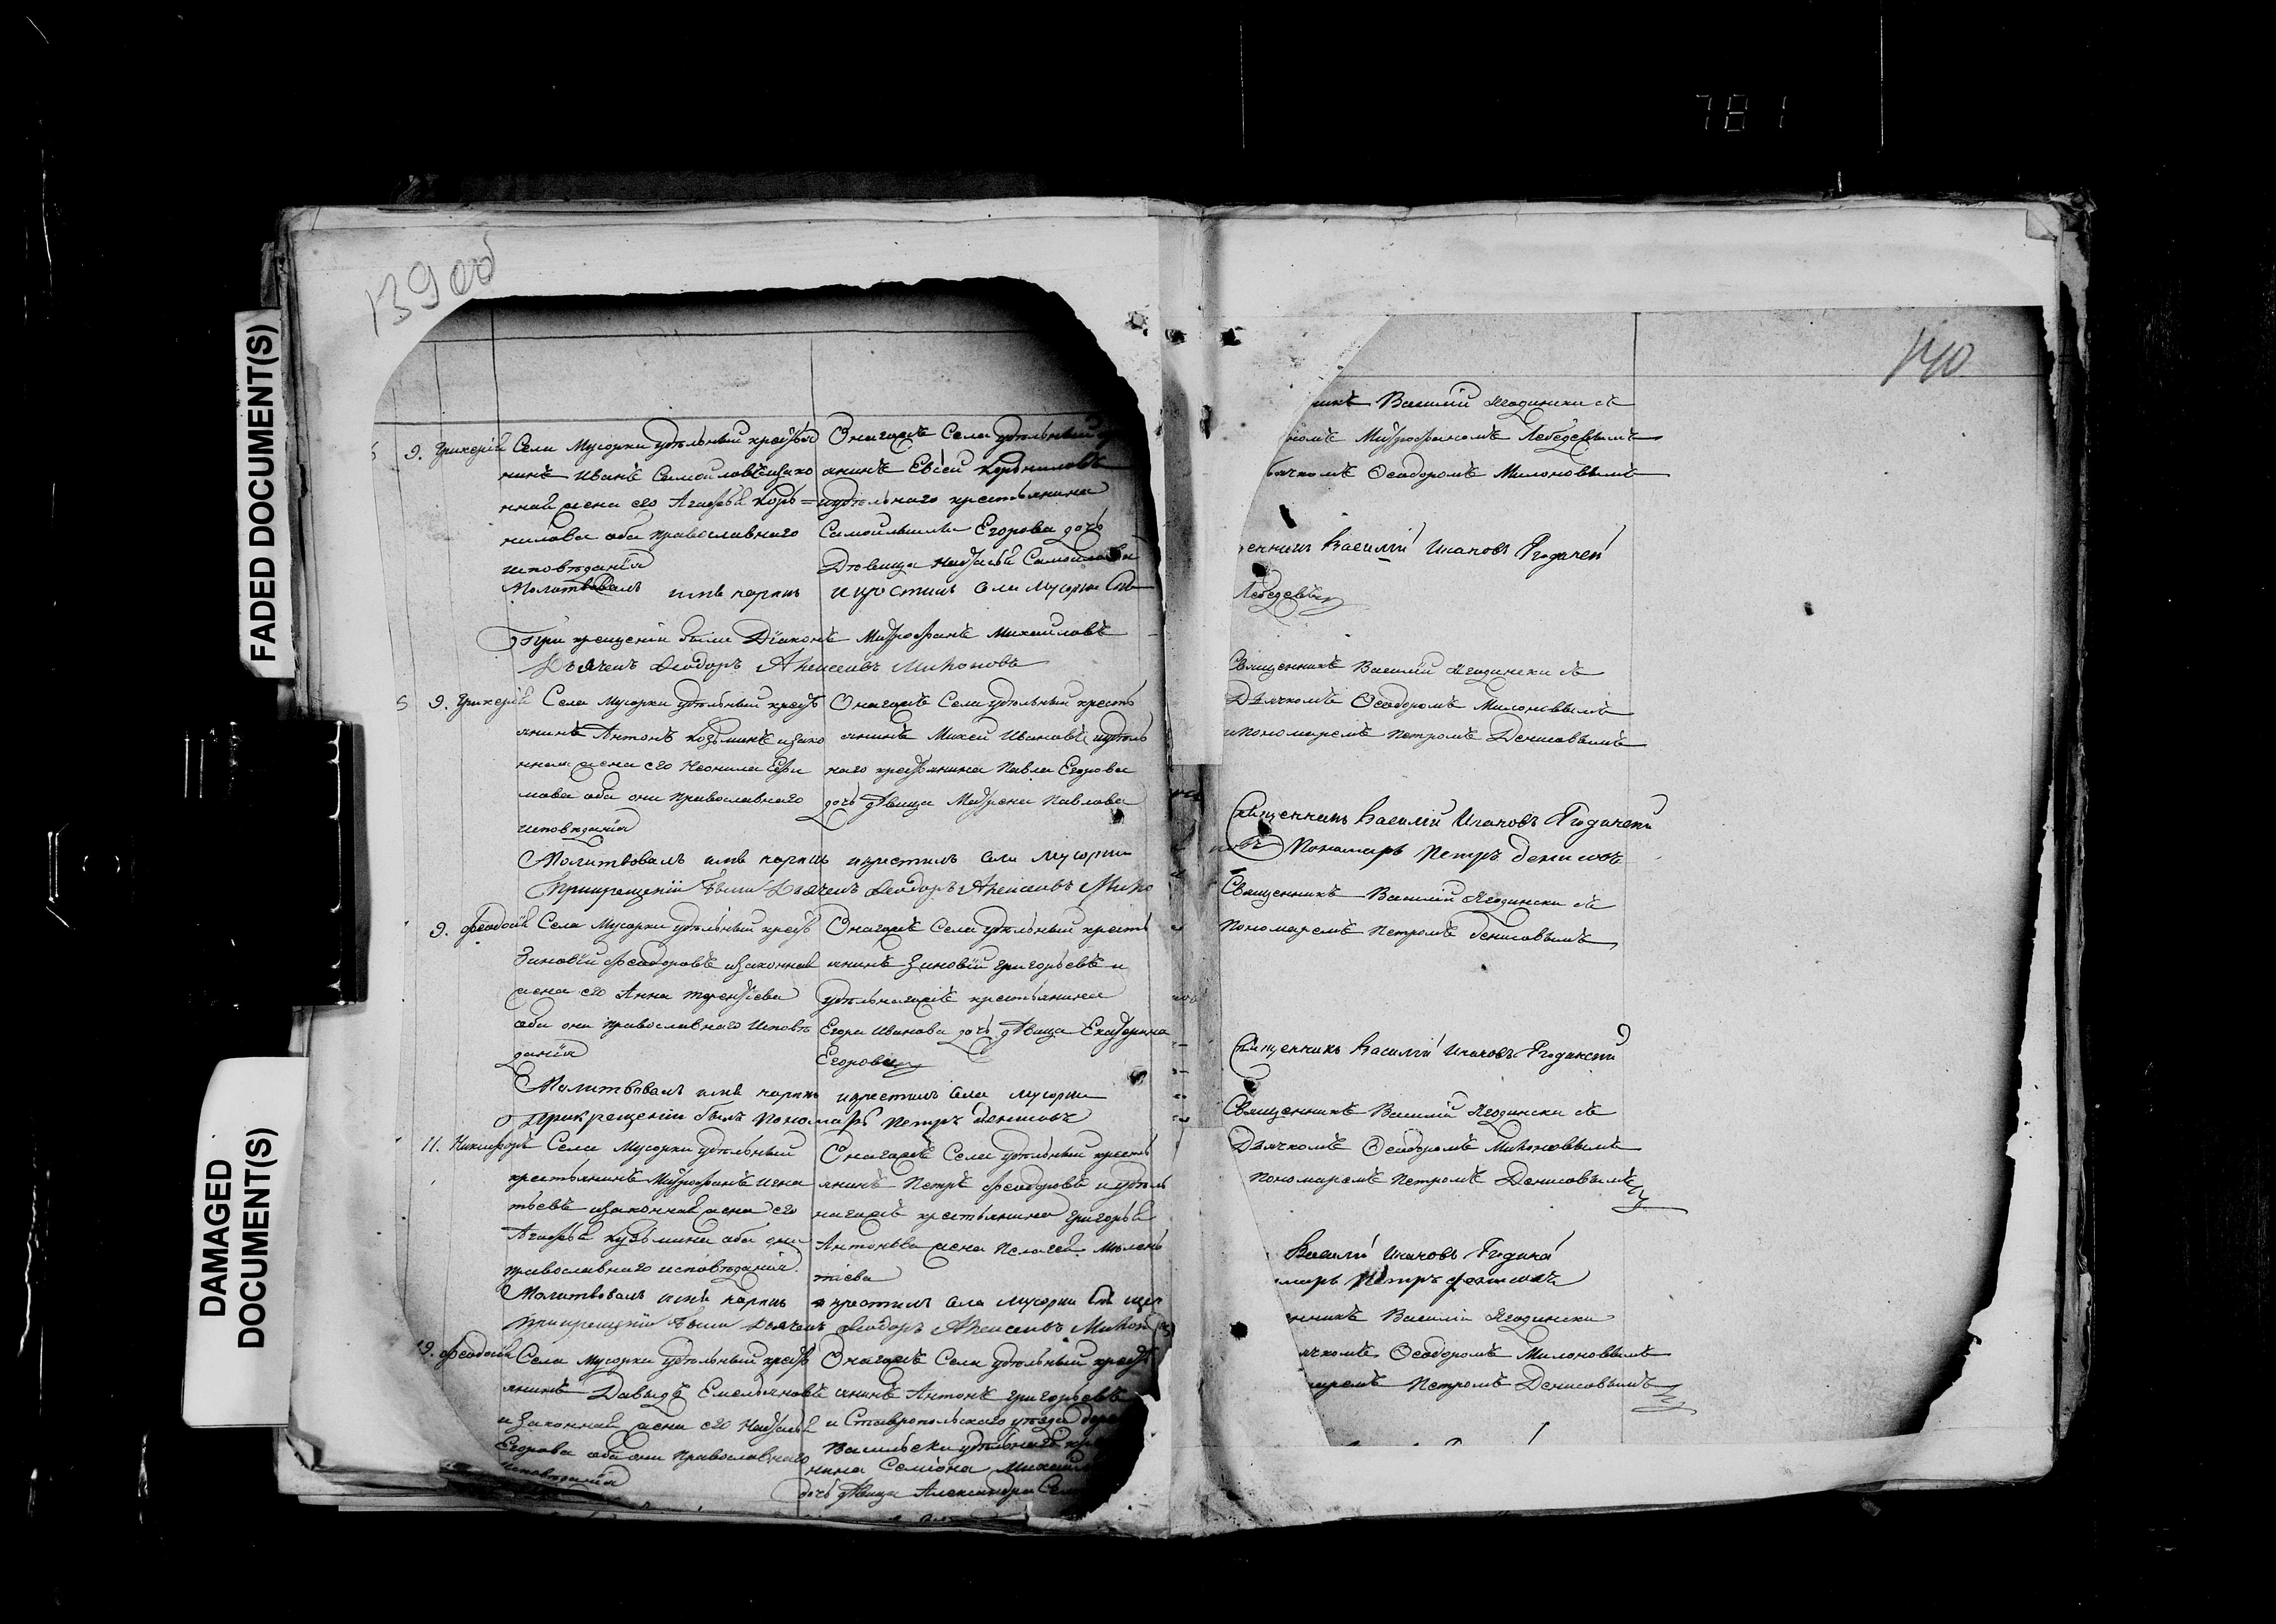 781
FADED DOCUMENT(S)
DAMAGED
DOCUMENT(S)
139 об
9. Гликерія Села Мусорки удѣльный крестья
нинъ Иванъ Самойловъ изако
нная жена его Агафья Кор=
нилова оба православнаго
исповѣданія
Онагожъ Села удѣльный
анинъ Евсей Корниловъ
иудѣльнаго крестьянина
Самойлы Егорова дочь
Дѣвица Наталья Самойлова
Молитвовалъ имя нарекъ и крестилъ села Мусорки Свя
При крещеніи были Діаконъ Митрофанъ Михайловъ
Дьячекъ Ѳеодоръ Алексеевъ Милоновъ
9. Гликерія Села Мусорки удѣльный крест
янинъ Антонъ Козьминъ изако
нная жена его Неонила Ефи
мова оба они православнаго
исповѣданія
Онагожъ Села удѣльный кресть
янинъ Михей Ивановъ иудѣль
наго крестьянина Павла Егорова
дочь дѣвица Матрена Павлова
Молитвовалъ имя нарекъ икрестилъ села Мусорки
Прикрещеніи были Дьячекъ Ѳеодоръ Алексеевъ Мило
9. Феодосій Села Мусорки удѣльный крест
Зиновій Феодоровъ изаконная
жена его Анна Терентіева
оба они православнаго исповѣ
данія
Онагожъ Села удѣльный кресть
янинъ Зиновій Григорьевъ и
удѣльнагожъ крестьянина
Егора Иванова дочь дѣвица Екатерина
Егорова
Молитвовалъ имя нарекъ икрестилъ села Мусорки
Прикрещеніи былъ Пономарь Петръ Денисовъ
11. Никифоръ Села Мусорки удѣльный
крестьянинъ Митрофанъ Игна
тьевъ изаконная жена его
Агафья Кузьмина оба они
православнаго исповѣданія.
Онагожъ Села удѣльный кресть
янинъ Петръ Феодоровъ и удѣль
нагожъ крестьянина Григорья
Антонова жена Пелагея Мелень
тіева
Молитвовалъ имя нарекъ и крестилъ села Мусорки Свящ
При крещеніи были Дьячекъ Ѳеодоръ Алексеевъ Милон
19. Феодосій Села Мусорки удѣльный крест
янинъ Давыдъ Емельяновъ
и законная жена его Наталья
Егорова оба они православнаго
исповѣданія
Онагожъ Села удѣльный крест
янинъ Антонъ Григорьевъ
и Ставропольскаго уѣзда дере
Васильевки удѣльнаго кре
нина Семіона Михайл
дочь дѣвица Александра Сем
140
никъ Василій Ягодинскій съ
номъ Митрофаномъ Лебедевымъ
ьячкомъ Ѳеодоромъ Милоновымъ
енникъ Василій Ивановъ Ягодинскій
Лебедевъ
Священникъ Василій Ягодинскій съ
Дьячкомъ Ѳеодоромъ Милоновымъ
ипономаремъ Петромъ Денисовымъ
Священникъ Василій Ивановъ Ягодинскій
новъ Пономарь Петръ Денисовъ
Священникъ Василій Ягодинскій съ
Пономаремъ Петромъ Денисовымъ
Священникъ Василій Ивановъ Ягодинскій
Священникъ Василій Ягодинскій съ
Дьячкомъ Ѳеодоромъ Милоновымъ
Пономаремъ Петромъ Денисовымъ
Василій Ивановъ Ягодинскій
марь Петръ Денисовъ
нникъ Василій Ягодинскій
ячкомъ Ѳеодоромъ Милоновымъ
маремъ Петромъ Денисовымъ